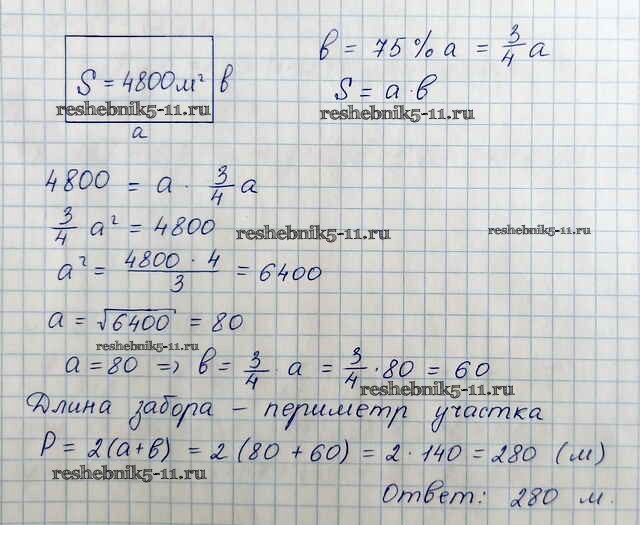 S = 4800 м² в
reshebnik5-11.ru
а
в = 75% а = 3/4 а
S = а · в
reshebnik5-11.ru
4800 = а · 3/4 а
3/4 а² = 4800
reshebnik5-11.ru
reshebnik5-11.ru
а² = 4800 · 4 / 3 = 6400
а = √6400 = 80
reshebnik5-11.ru
а = 80 => в = 3/4 · а = 3/4 · 80 = 60
reshebnik5-11.ru
Длина забора – периметр участка
Р = 2(а+в) = 2 (80 + 60) = 2 · 140 = 280 (м)
reshebnik5-11.ru
Ответ: 280 м.